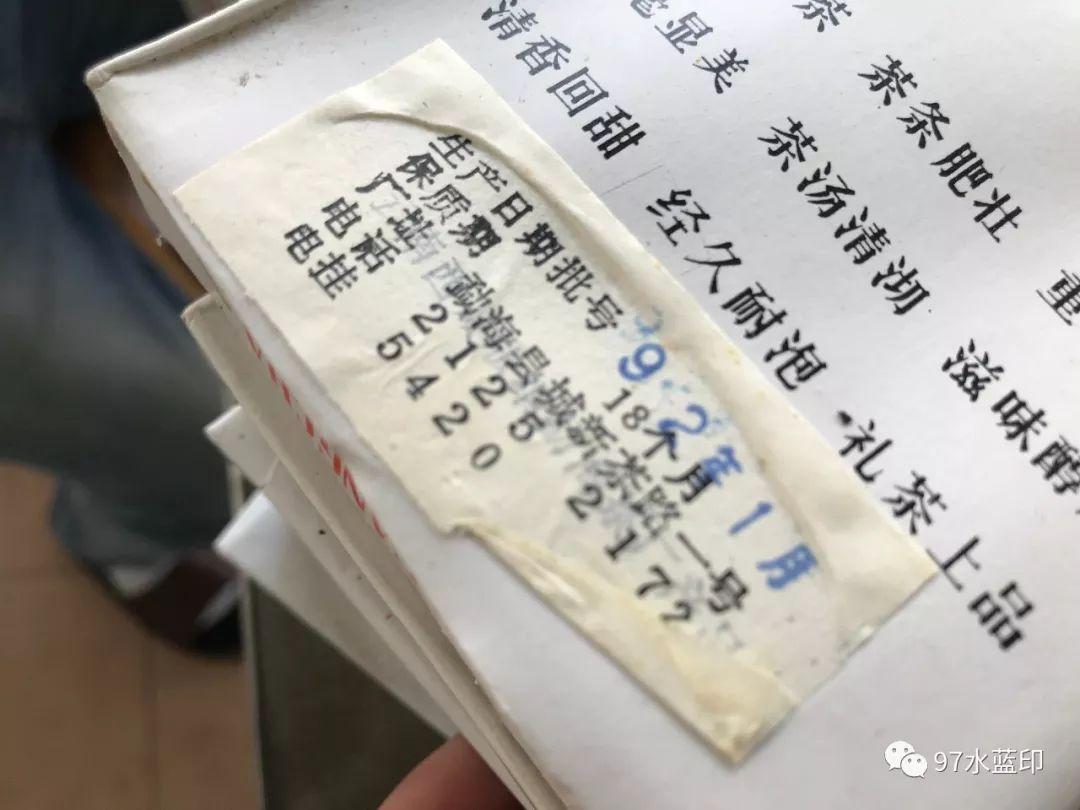 茶
茶条肥壮　重
毫显美　茶汤清沏　滋味醇
清香回甜　经久耐泡　礼茶上品
生产日期批号　92年1月
保质期　18个月
厂址　勐海县城新茶路一号
电话　2125　2172
电挂　5420
97水蓝印